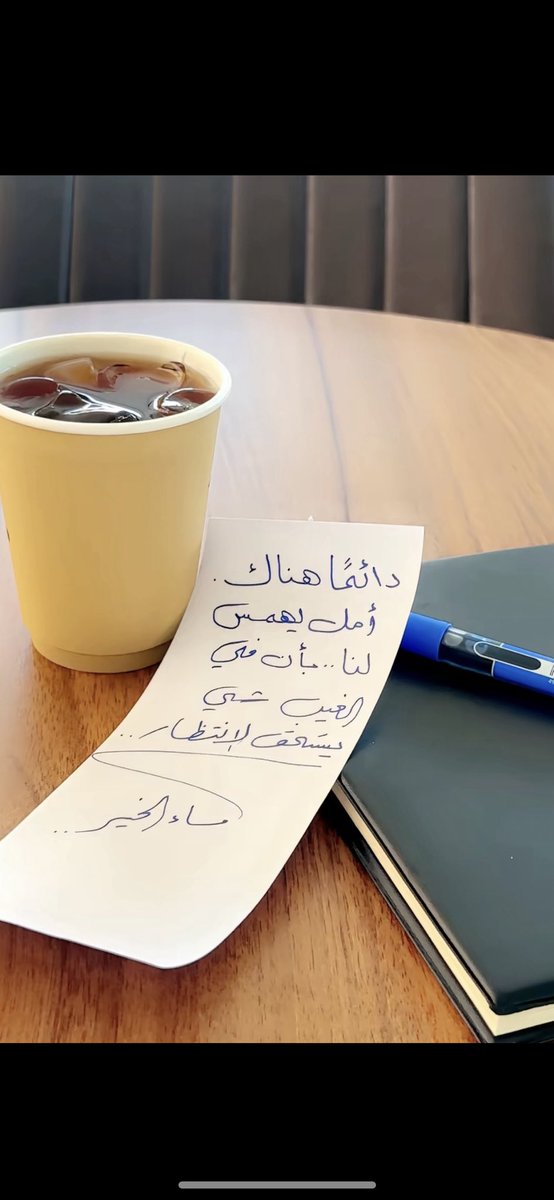 دائمًا هناك .
أمل يهمس
لنا.. بأن في
الغيب شي
يستحق الإنتظار..
مساء الخير..